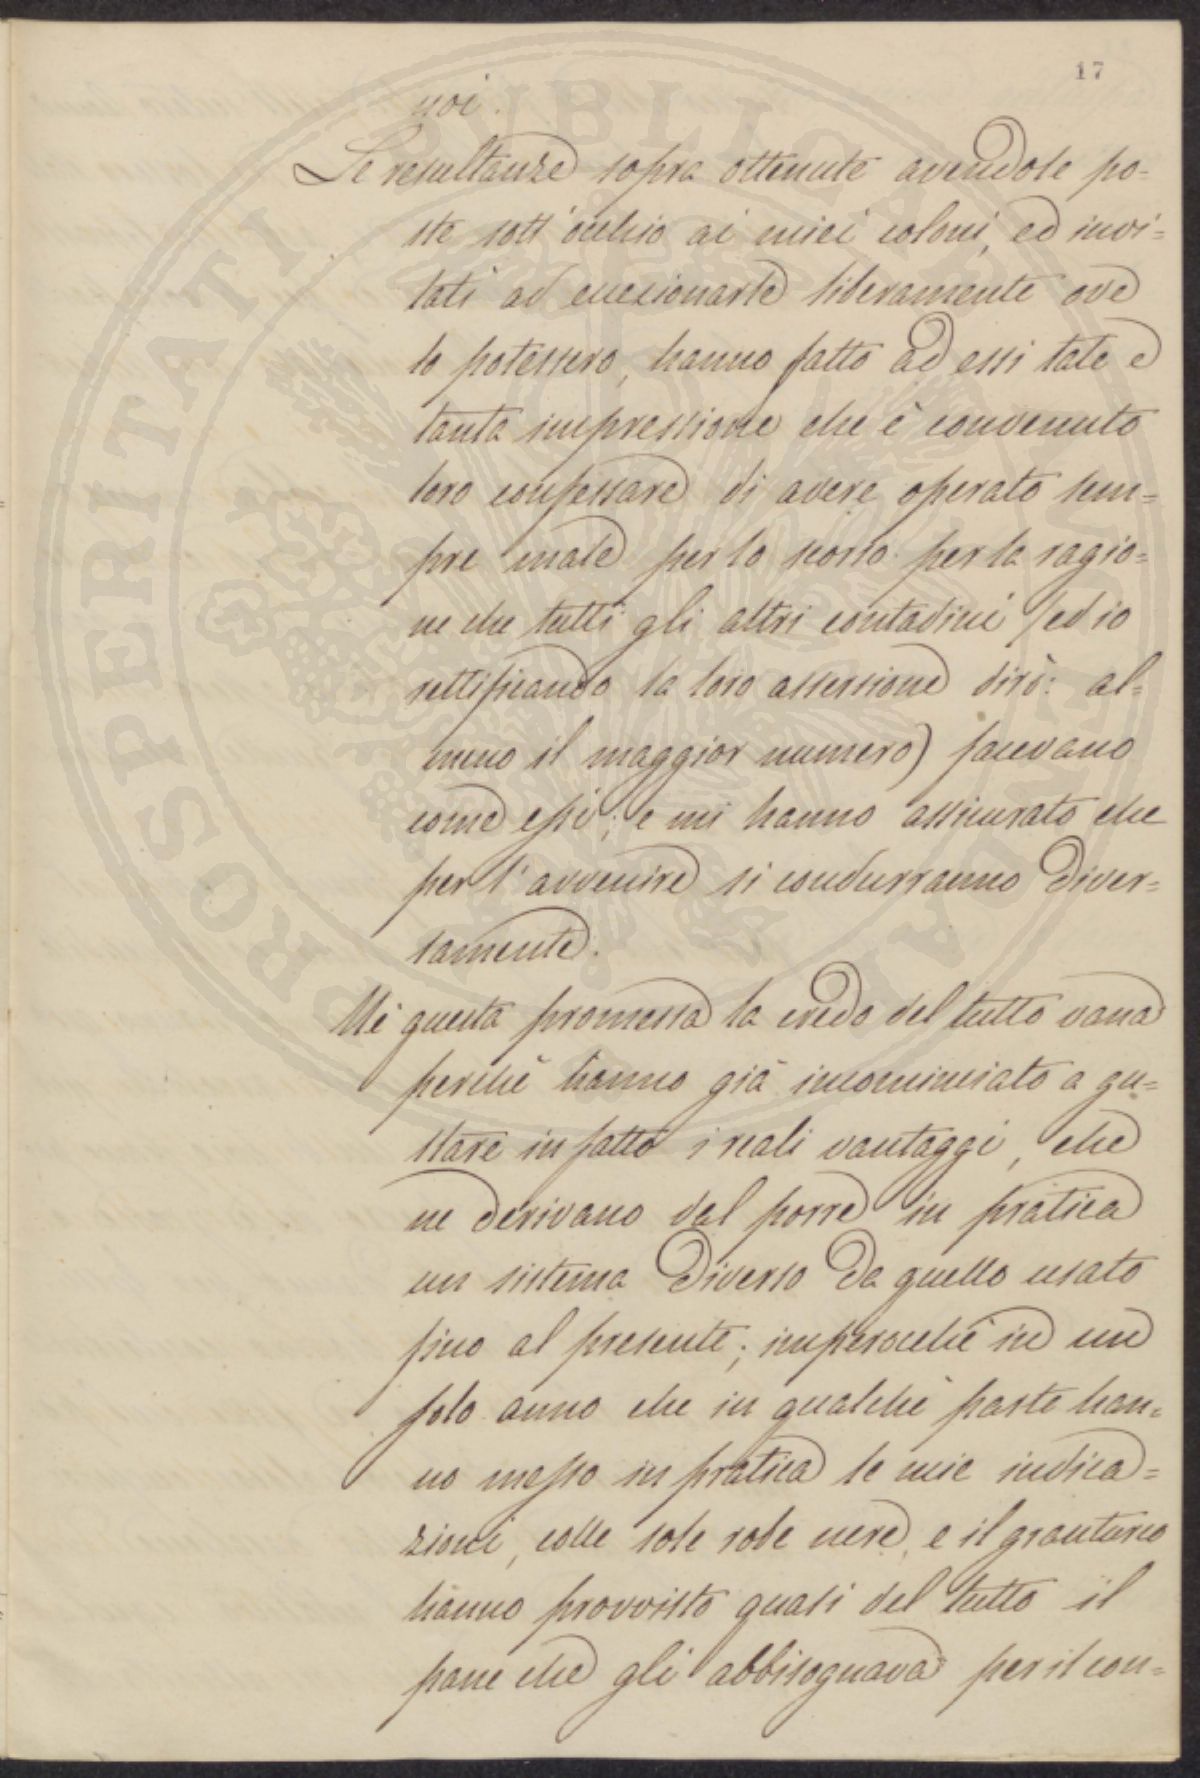 17
noi.
Le resultanze sopra ottenute avendole po=
ste sott'occhio ai miei coloni, ed invi=
tati ad eccezionarle liberamente ove
lo potessero, hanno fatto ad essi tale e
tanta impressione che è convenuto
loro confessare di avere operato sem=
pre male per lo scorso per la ragio=
ne che tutti gli altri contadini (ed io
rettificando la loro asserzione dirò: al=
meno il maggior numero) facevano
come essi; e mi hanno assicurato che
per l'avvenire si condurranno diver=
samente.
Nè questa promessa la credo del tutto vana
perchè hanno già incominciato a gu=
stare in fatto i reali vantaggi, che
ne derivano dal porre in pratica
un sistema diverso da quello usato
fino al presente; imperocchè in un
solo anno che in qualche parte han=
no messo in pratica le mie indica=
zioni, colle sole robe nere, e il granturco
hanno provvisto quasi del tutto il
pane che gli abbisognava per il con=
PROSPERITATI PUBLICAE AUGENDAE